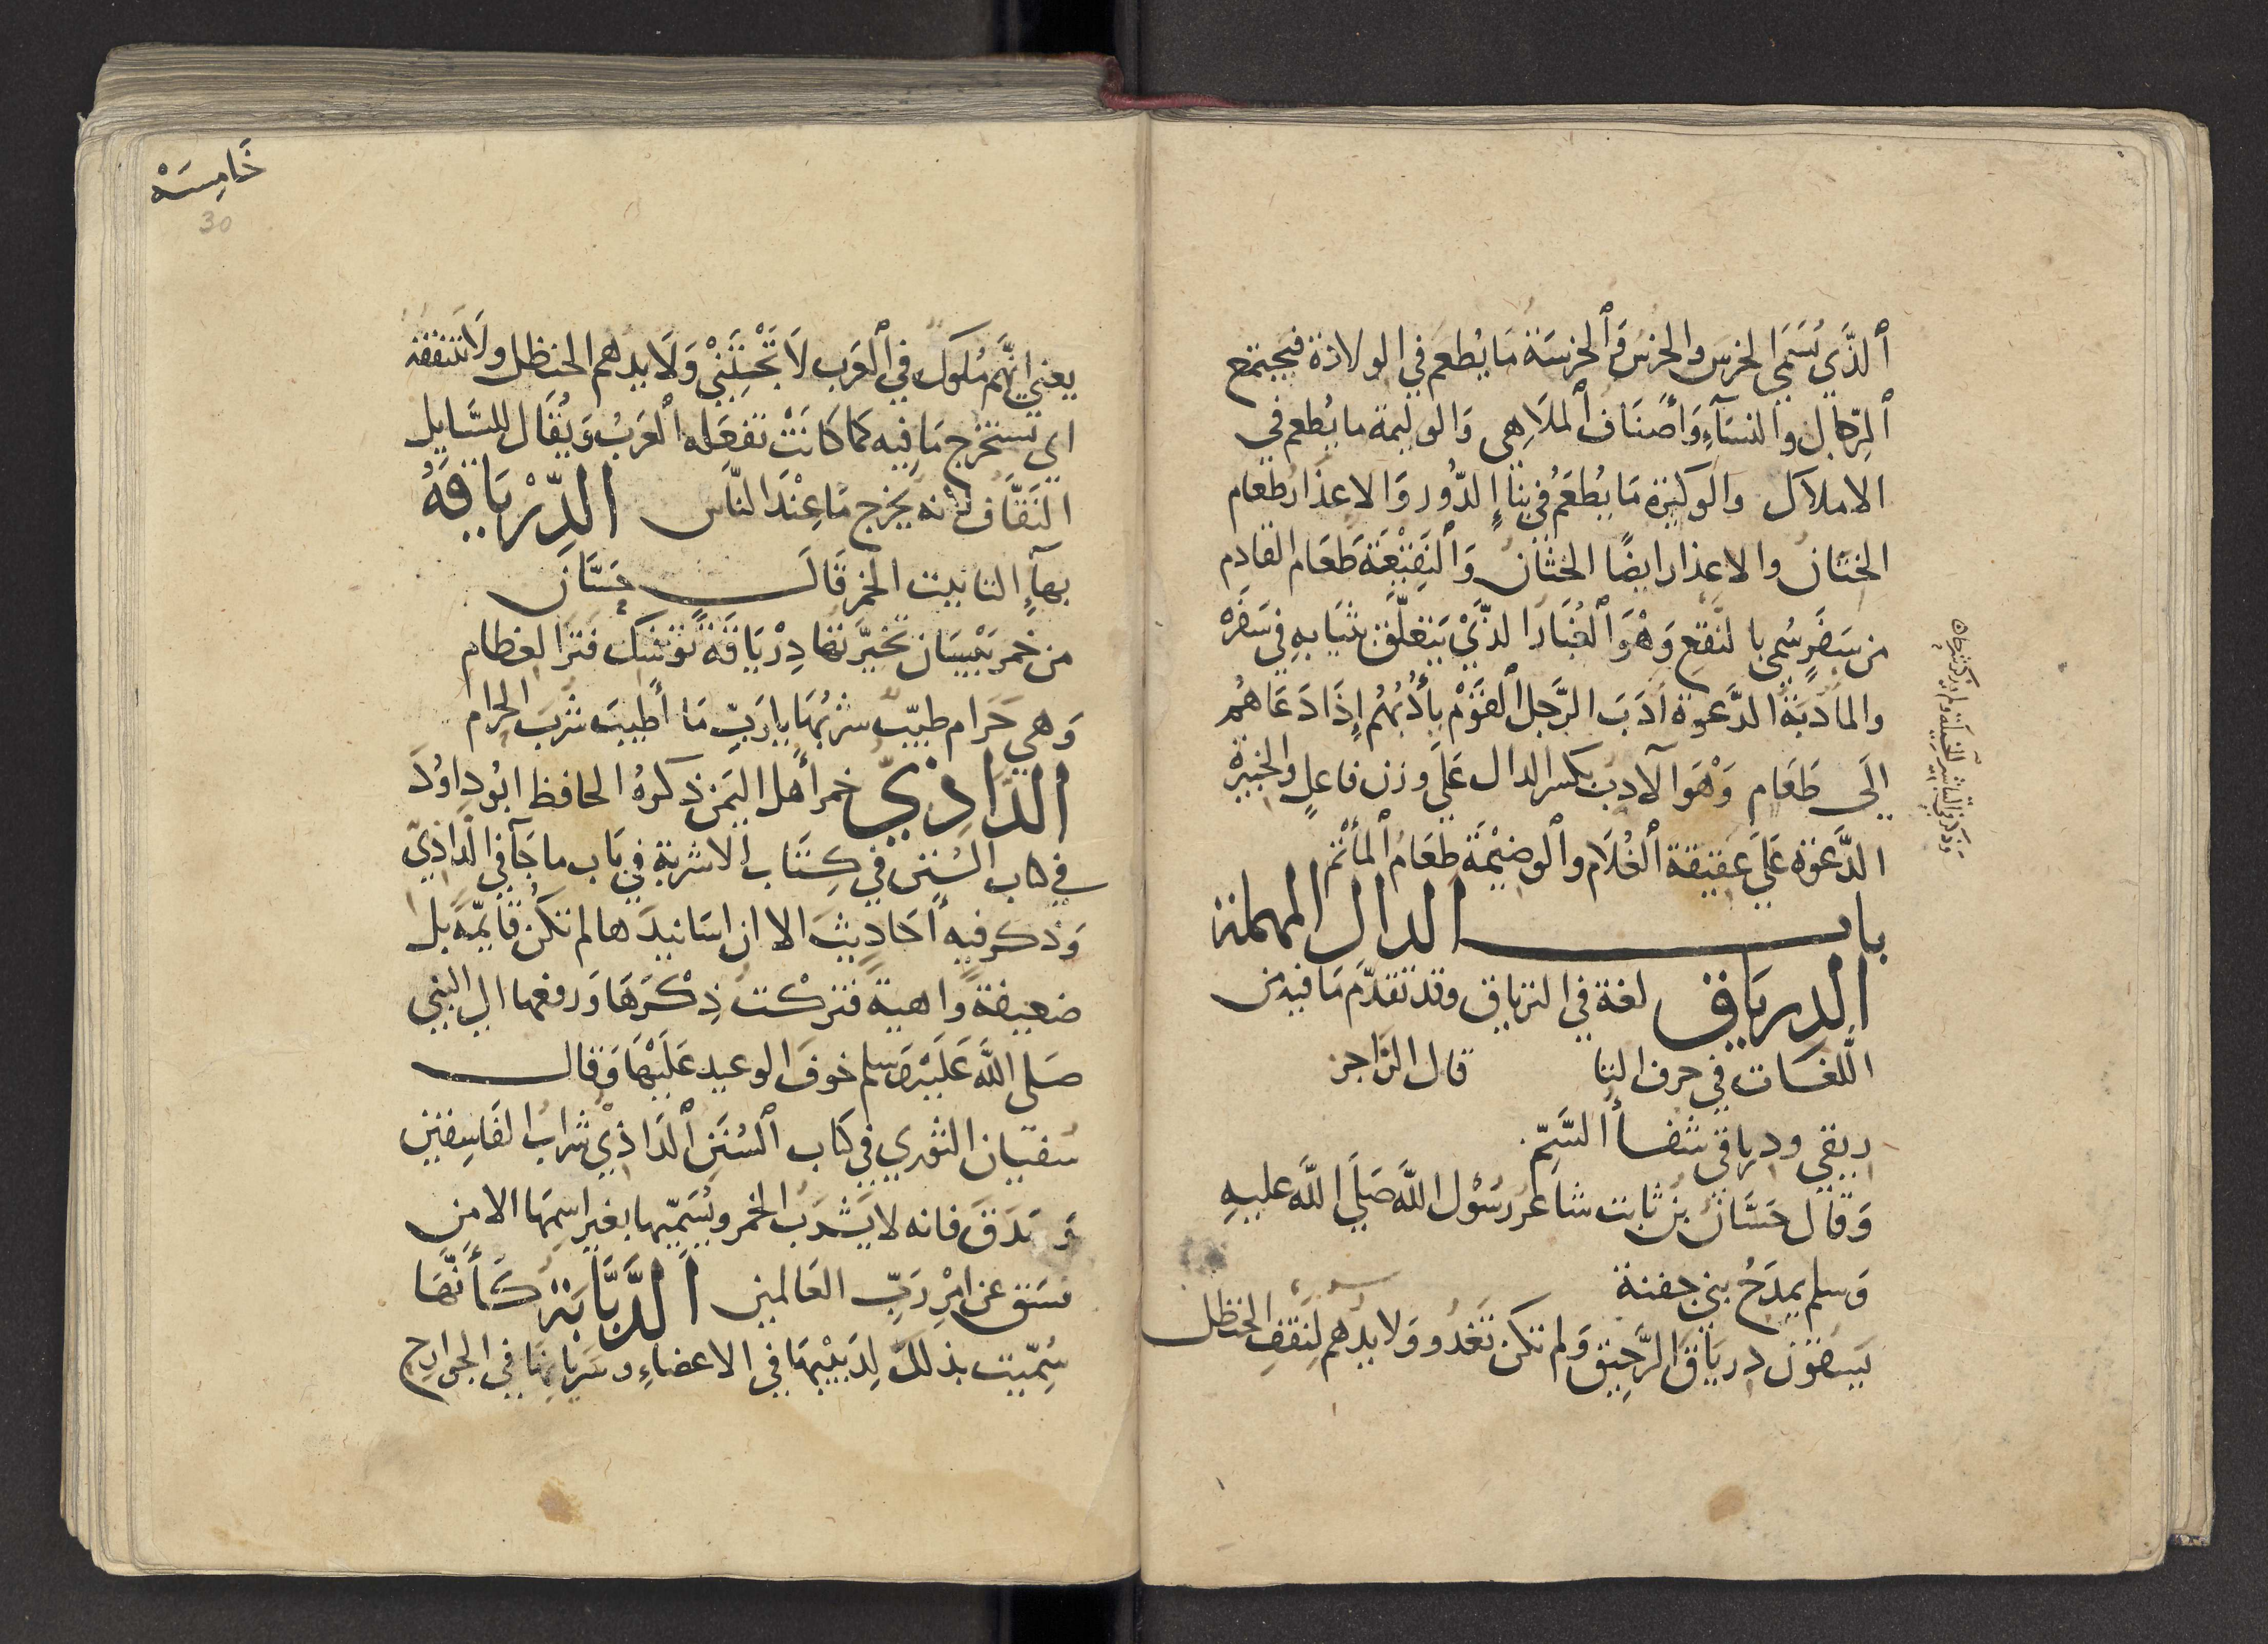 ٱلذَّي يُسَمَى الخرس والخُرسُ وَٱلخرسَة مَا يُطعم في الولادة فيجتمع
ٱلرّجال والنسَآءِ وَأصنَاف ٱلملَاهِى وَالوليمة ما يُطعم في
الاملاك والوكيرة مَا يُطعَمُ في بناءِ الدُّور وَالاعذار طعام
الختان والاعذار ايضًا الختان وَٱلنَقِيْعَة طَعَام القادِم
من سَفَرٍ سُمى بالنَقع وَهْوَ ٱلغُبَار الذَّيْ يَتعلّق بثيَابهِ في سَفَرْه
والمأدَبَة الدَّعوة أدَبَ الرَّجل ٱلقَوْمَ يأدُبُهُم إذَا دَعَاهُم
إلَى طَعَام وَهْوَ الآدب بكسر الدال عَلَى وزن فاعلٍ والخبيرة
الدَّعوة عَلَى عقيقة ٱلغُلَام وٱلوضيْمَة طعَامُ ٱلمأتم
باب الدال المهملة
الدِريَاق لغة في الترياق وقد تقدّم مَا فيه من
اللّغَات في حرف التا قال الرَّاجز
ريقي ودرياقي شفاءُ السَّمّ
وَقال حَسَّانُ بن ثابت شاعر رسُول اللَّه صَلَى اللَّه عليهِ
وَسلم يمدَحُ بني جفنة
يَسقون دريَاقَ الرَّحِيق وَلم تكن تَغدُو وَلايدهم لِنقفِ الحنظل
خَامِسَه
30
يعني إنَّهم مُلوك في ٱلعَرب لَا تَجْتَنَيْ وَلَايدهم الحنظل ولَا تنقفه
اي تستخرج مَا فيه كمَا كَانَتْ تفعَله ٱلعَربُ وَيُقَال للسَّايل
النَقَّاف لأنه يخرج مَا عِنْدَ النَّاس الدِّرْيَاقةُ
بهآءِ التانيث الخمر قَال حسَّان
من خمر بَيْسَان تخيَّرتها دِرْيَاقَةً توشك فَترَ العظام
وَهي حَرام طيّب شربُهَا يا رَبّ مَا أطيبَ شربَ الحرام
الدَّاذِيّ خمر أهل اليَمن ذكرهُ الحافظ ابُو داوُدَ
في كتاب السُنن في كِتَاب الاشربة في بَاب ما جَآ في الدّاذِيّ
وَذكر فيه أحَاديثَ الا ان اسَانيدَها لم تكُن قايمَة بل
ضعيفة واهية فتركت ذِكْرَهَا وَرفعها الى النبي
صَلى اللَّه عَلَيْه وَسلم خوفَ الوعيد عَلَيْهَا وَقال
سُفيَان الثوري في كتاب ٱلسُنَن ٱلدَاذِيْ شرابُ الفَاسِقين
وَصَدَقَ فانه لا يَشْرَبُ الخمر ويُسَمّيها بغير اسمِهَا الا من
فسَق عن امْرِ رَبّ العَالمين ٱلدَّبَّابَة كَأنَّهَا
سُمّيت بذلك لِدَبِيْبِهَا في الاعضاءِ وسَريَانِهَا في الجوارح